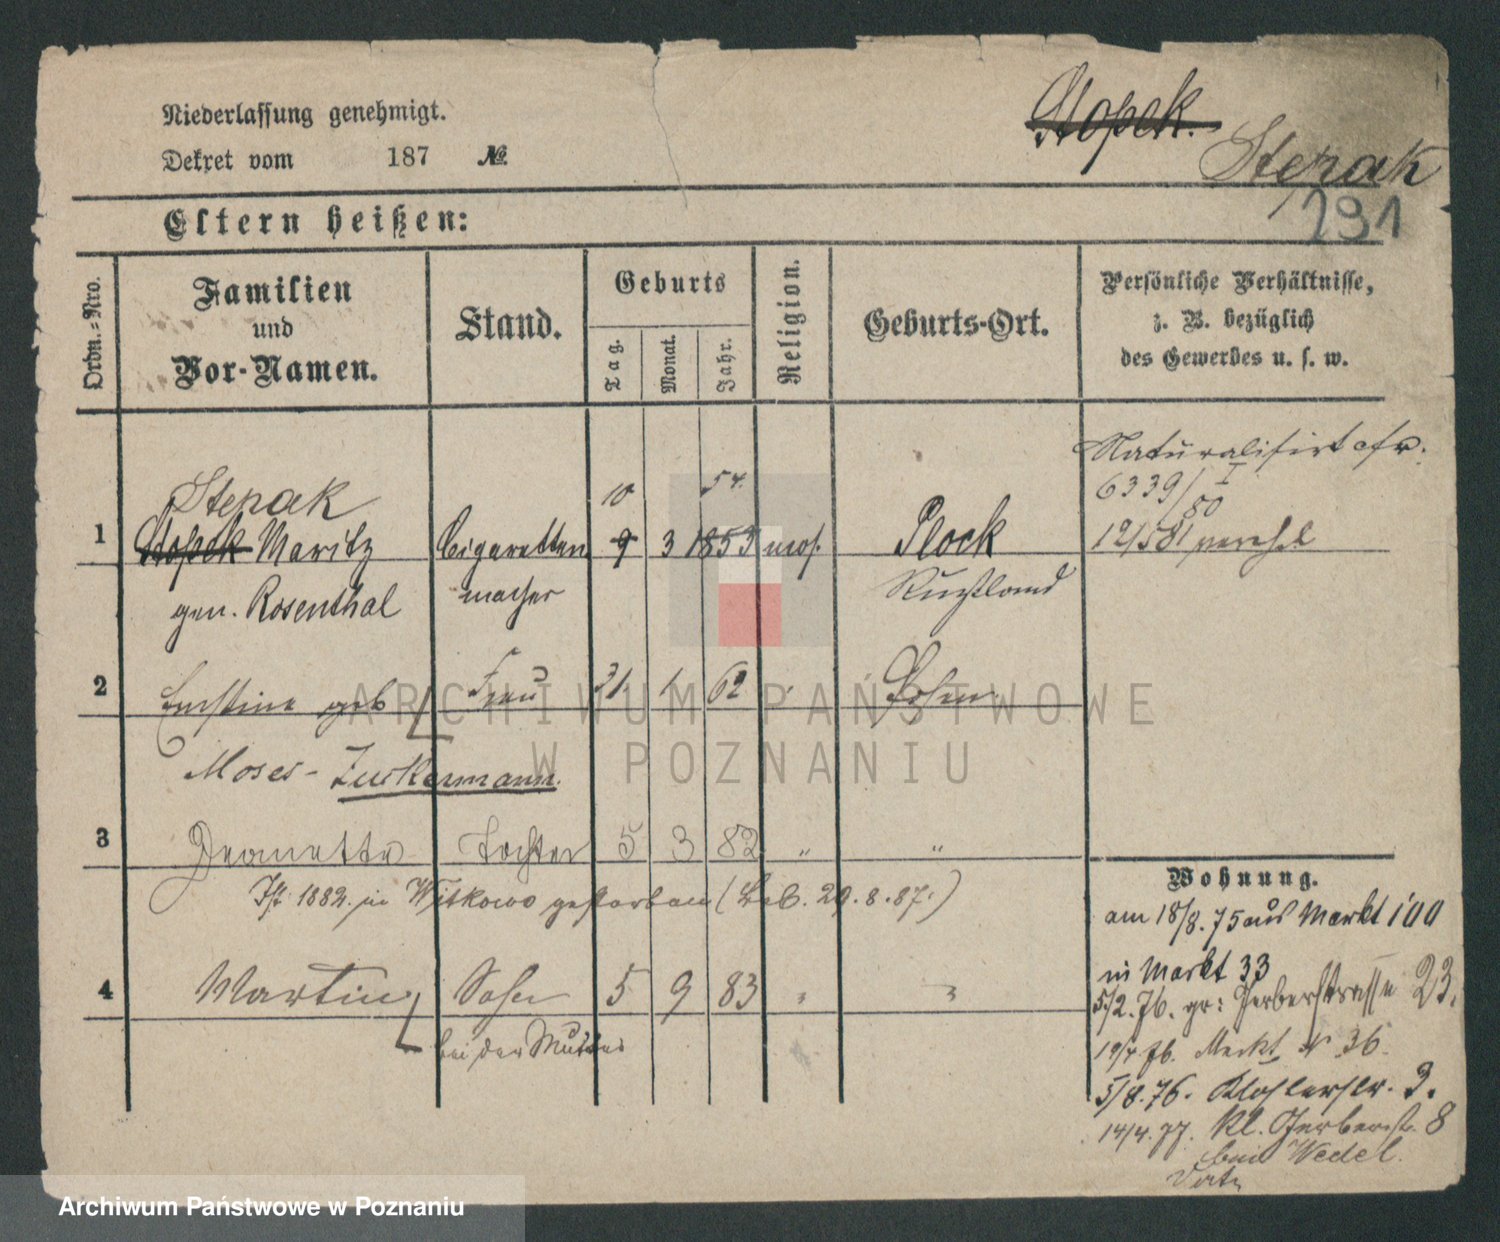 Niederlassung genehmigt.
Dekret vom 187 №
Stopek.
Stepak
291
Eltern heißen:
Ordn.-Nro.
Familien
und
Vor-Namen.
Stand.
Geburts
Tag.
Monat.
Jahr.
Religion.
Geburts-Ort.
Persönliche Verhältnisse,
z. B. bezüglich
des Gewerbes u. s. w.
Naturalisirt
6339/I 80
12/5 81
Stepak 10 54.
1 Stopek Moritz Cigaretten 9 3 1853 mos. Plock
gen. Rosenthal macher Rußland
2 Ernstine geb Frau 21 1 62 " Posen
Moses - Zuckermann.
3 Jeanette Tochter 5 3 82 " "
Ist 1882 in Witkowo gestorben (Leb. 29.8.87.)
4 Martin Sohn 5 9 83 " "
bei der Mutter
Wohnung.
am 18/8. 75 aus Markt 100
in Markt 33
5/2. 76. gr: Gerberstrasse 23.
19/7 76. Markt № 36.
5/8. 76. Klosterstr. 3.
14/4. 77. Kl. Gerberstr. 8
bei Wedel.
ARCHIWUM PAŃSTWOWE
W POZNANIU
Archiwum Państwowe w Poznaniu